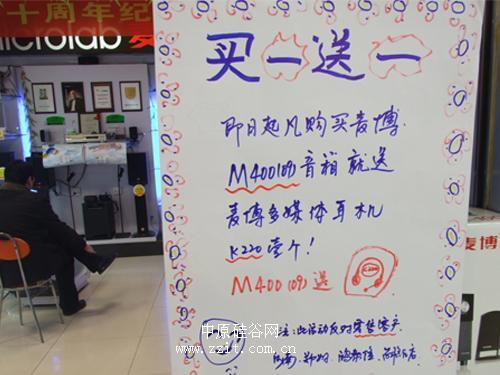 十周年纪
microlab 麦
买一送一
即日起凡购买麦博
M400(09)音箱就送
麦博多媒体耳机
K220壹个!
M400(09)送
K220
麦博
注:此活动反对零售客户
中原硅谷网
www.zzit.com.cn